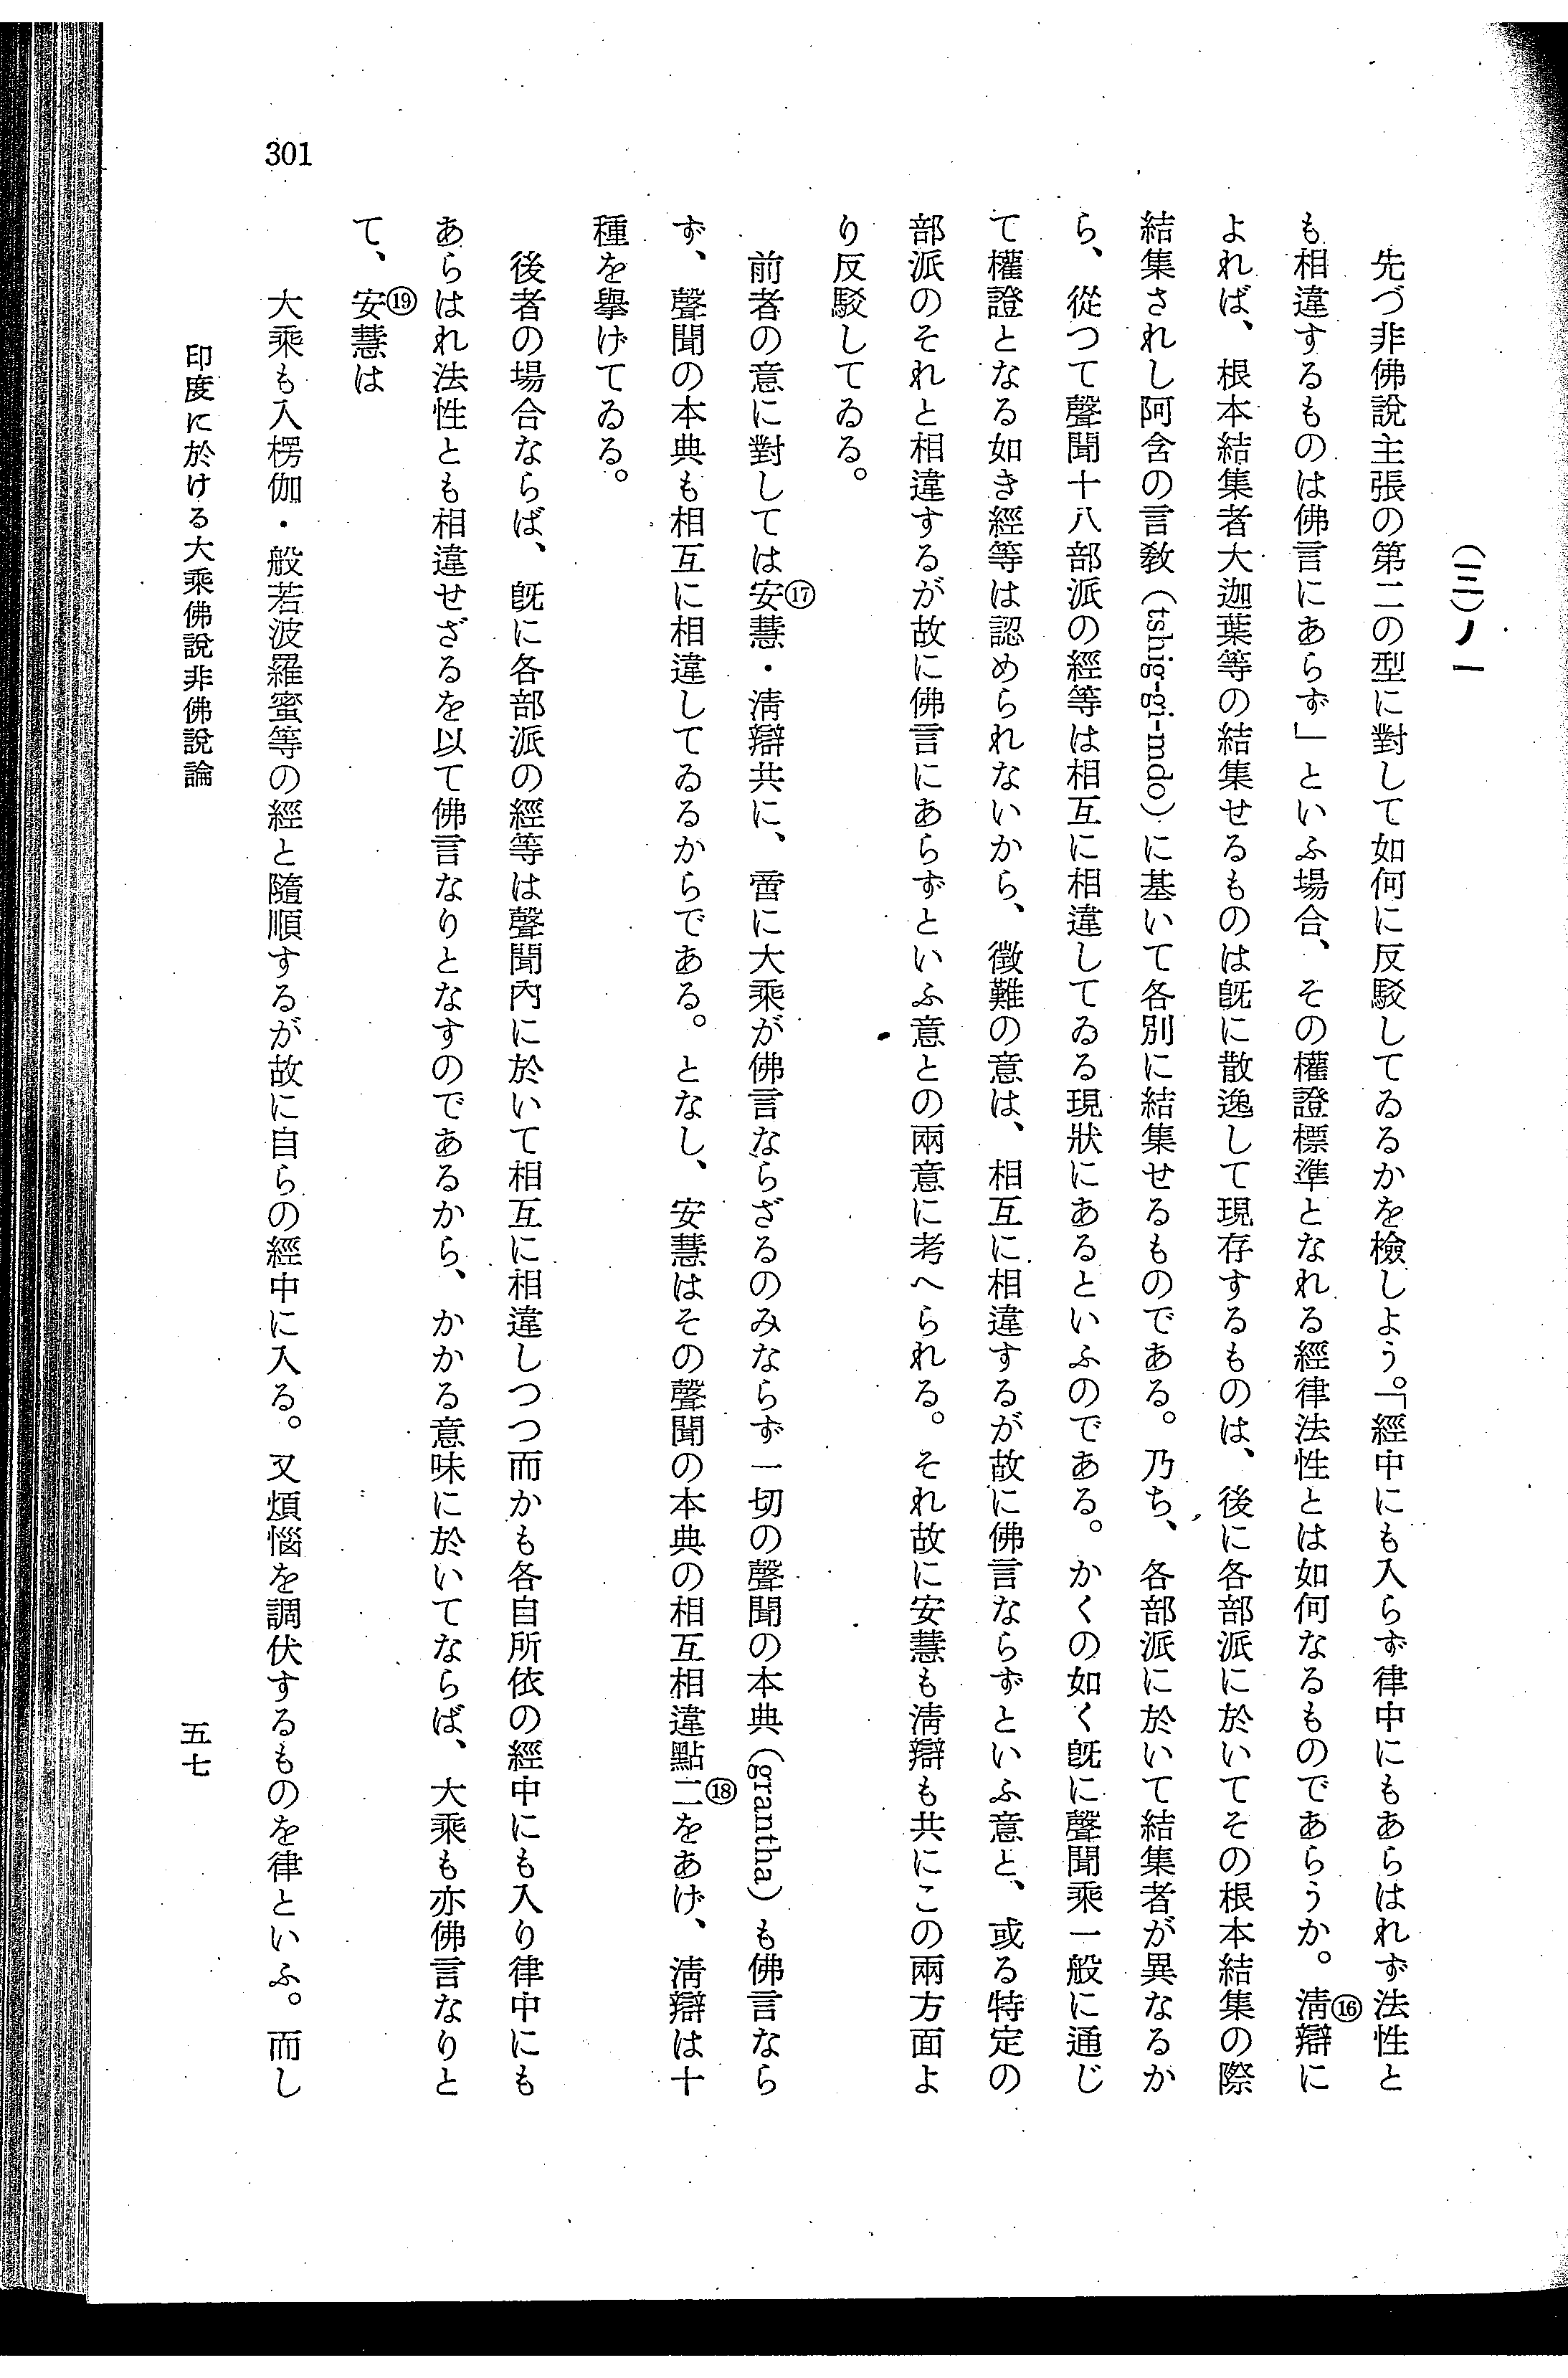 （三）ノ一
先づ非佛說主張の第二の型に對して如何に反駁してゐるかを檢しよう。「經中にも入らず律中にもあらはれず法性と
も相違するものは佛言にあらず」といふ場合、その權證標準となれる經律法性とは如何なるものであらうか。淸辯⑯に
よれば、根本結集者大迦葉等の結集せるものは旣に散逸して現存するものは、後に各部派に於いてその根本結集の際
結集されし阿含の言敎（tshig-gi-mdo）に基いて各別に結集せるものである。乃ち、各部派に於いて結集者が異なるか
ら、從つて聲聞十八部派の經等は相互に相違してゐる現狀にあるといふのである。かくの如く旣に聲聞乘一般に通じ
て權證となる如き經等は認められないから、徵難の意は、相互に相違するが故に佛言ならずといふ意と、或る特定の
部派のそれと相違するが故に佛言にあらずといふ意との兩意に考へられる。それ故に安慧も淸辯も共にこの兩方面よ
り反駁してゐる。
前者の意に對しては安慧⑰・淸辯共に、啻に大乘が佛言ならざるのみならず一切の聲聞の本典（grantha）も佛言なら
ず、聲聞の本典も相互に相違してゐるからである。となし、安慧はその聲聞の本典の相互相違點二⑱をあげ、淸辯は十
種を擧げてゐる。
後者の場合ならば、旣に各部派の經等は聲聞內に於いて相互に相違しつつ而かも各自所依の經中にも入り律中にも
あらはれ法性とも相違せざるを以て佛言なりとなすのであるから、かかる意味に於いてならば、大乘も亦佛言なりと
て、安慧⑲は
大乘も入楞伽・般若波羅蜜等の經と隨順するが故に自らの經中に入る。又煩惱を調伏するものを律といふ。而し
印度に於ける大乘佛說非佛說論
五七
301